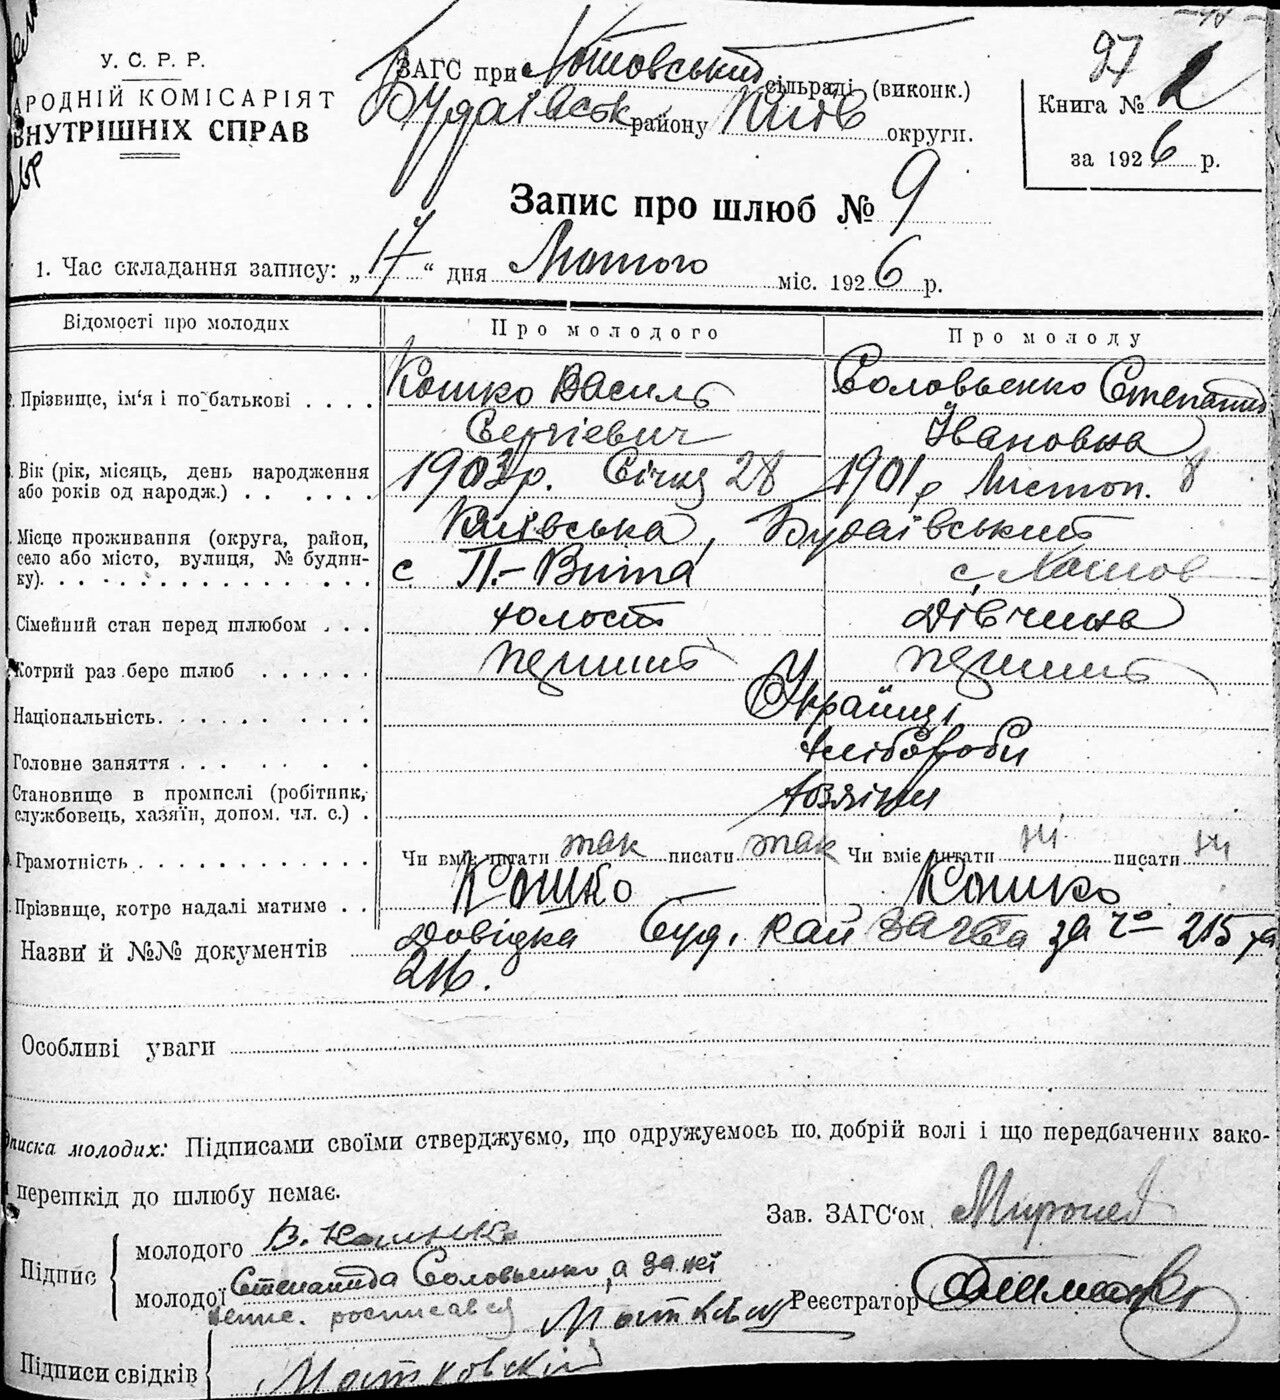 У. С. Р. Р.
АРОДНІЙ КОМІСАРІЯТ
ВНУТРІШНІХ СПРАВ
ЗАГС при Хотовський сільраді (виконк.)
Будаївськ району Київ округи.
97
Книга № 2
за 1926 р.
Запис про шлюб № 9
1. Час складання запису: „17“ дня Лютого міс. 1926 р.
Відомості про молодих
Про молодого
Про молоду
Прізвище, ім‘я і по-батькові . . . .
Кошко Василь
Сергієвич
Соловьенко Степанид
Івановна
Вік (рік, місяць, день народження
або років од народж.) . . . . . .
1903 р. Січня 28
1901 р Листоп. 8
Місце проживання (округа, район,
село або місто, вулиця, № будин-
ку). . . . . . . . . . . . . . . .
Київська, Будаївський
с П.-Вита
с. Хотов
Сімейний стан перед шлюбом . . .
холост
дівчина
Котрий раз бере шлюб . . . . . .
перший
перший
Національність. . . . . . . . . .
Українці
Головне заняття . . . . . . . .
хлібороби
Становище в промислі (робітник,
службовець, хазяїн, допом. чл. с.) .
хозяіни
Грамотність . . . . . . . . . . . .
Чи вміє читати так писати так
Чи вміє читати ні писати ні
Прізвище, котре надалі матиме . .
Кошко
Кошко
Назви й №№ документів
Довідка Буд. Рай ЗАГСа за ч° 215 та
216.
Особливі уваги
писка молодих: Підписами своїми стверджуємо, що одружуємось по добрій волі і що передбачених зако-
перешкід до шлюбу немає.
Зав. ЗАГС‘ом
Підпис
молодого В. Кошко
молодої Степанида Соловьенко, а за неї
росписався
Реєстратор
Підписи свідків
Мостковскій